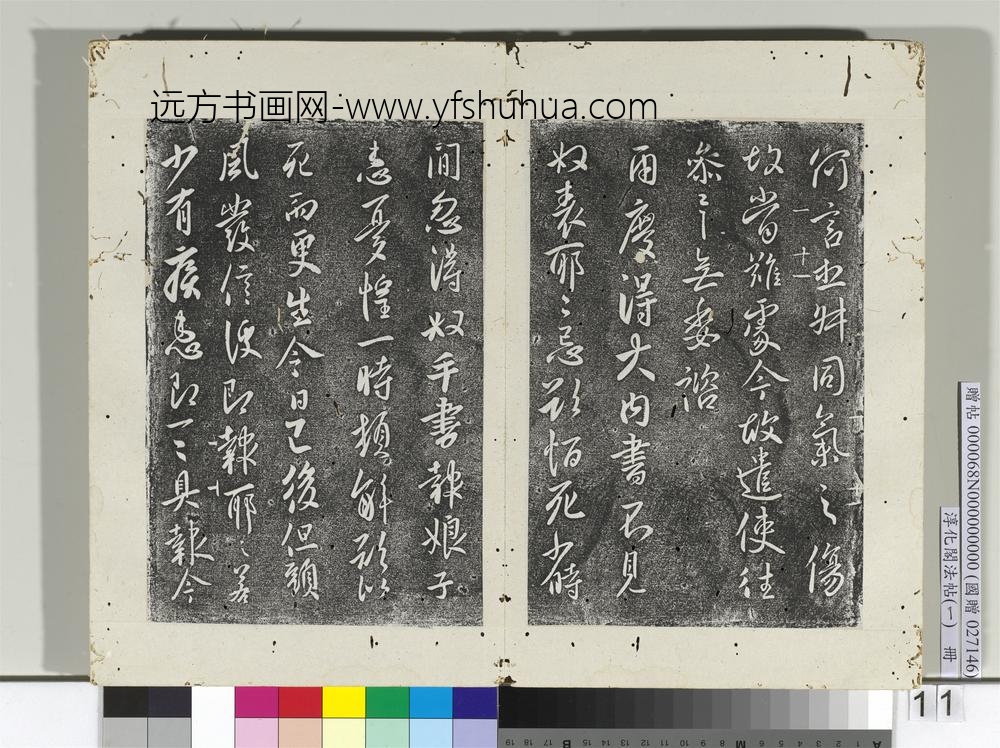 远方书画网-www.yfshuhua.com
何言並舛同氣之傷
故當難處今故遣使往
參之之無委諮
兩度得大内書不見
奴表耶耶忌欲恒死少時
間忽得奴手書報娘子
患憂惶一時頓解欲似
死而更生今日已後但頭
風發信便即報耶耶若
少有疾患即一一具報今
一
十一
贈帖 000068N000000000 (國贈 027146)
淳化閣法帖(一) 冊
11